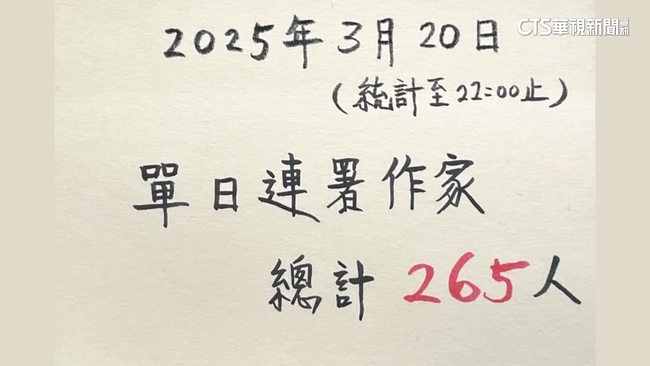 CTS華視新聞資訊
2025年3月20日
(統計至22:00止)
單日連署作家
總計 265人